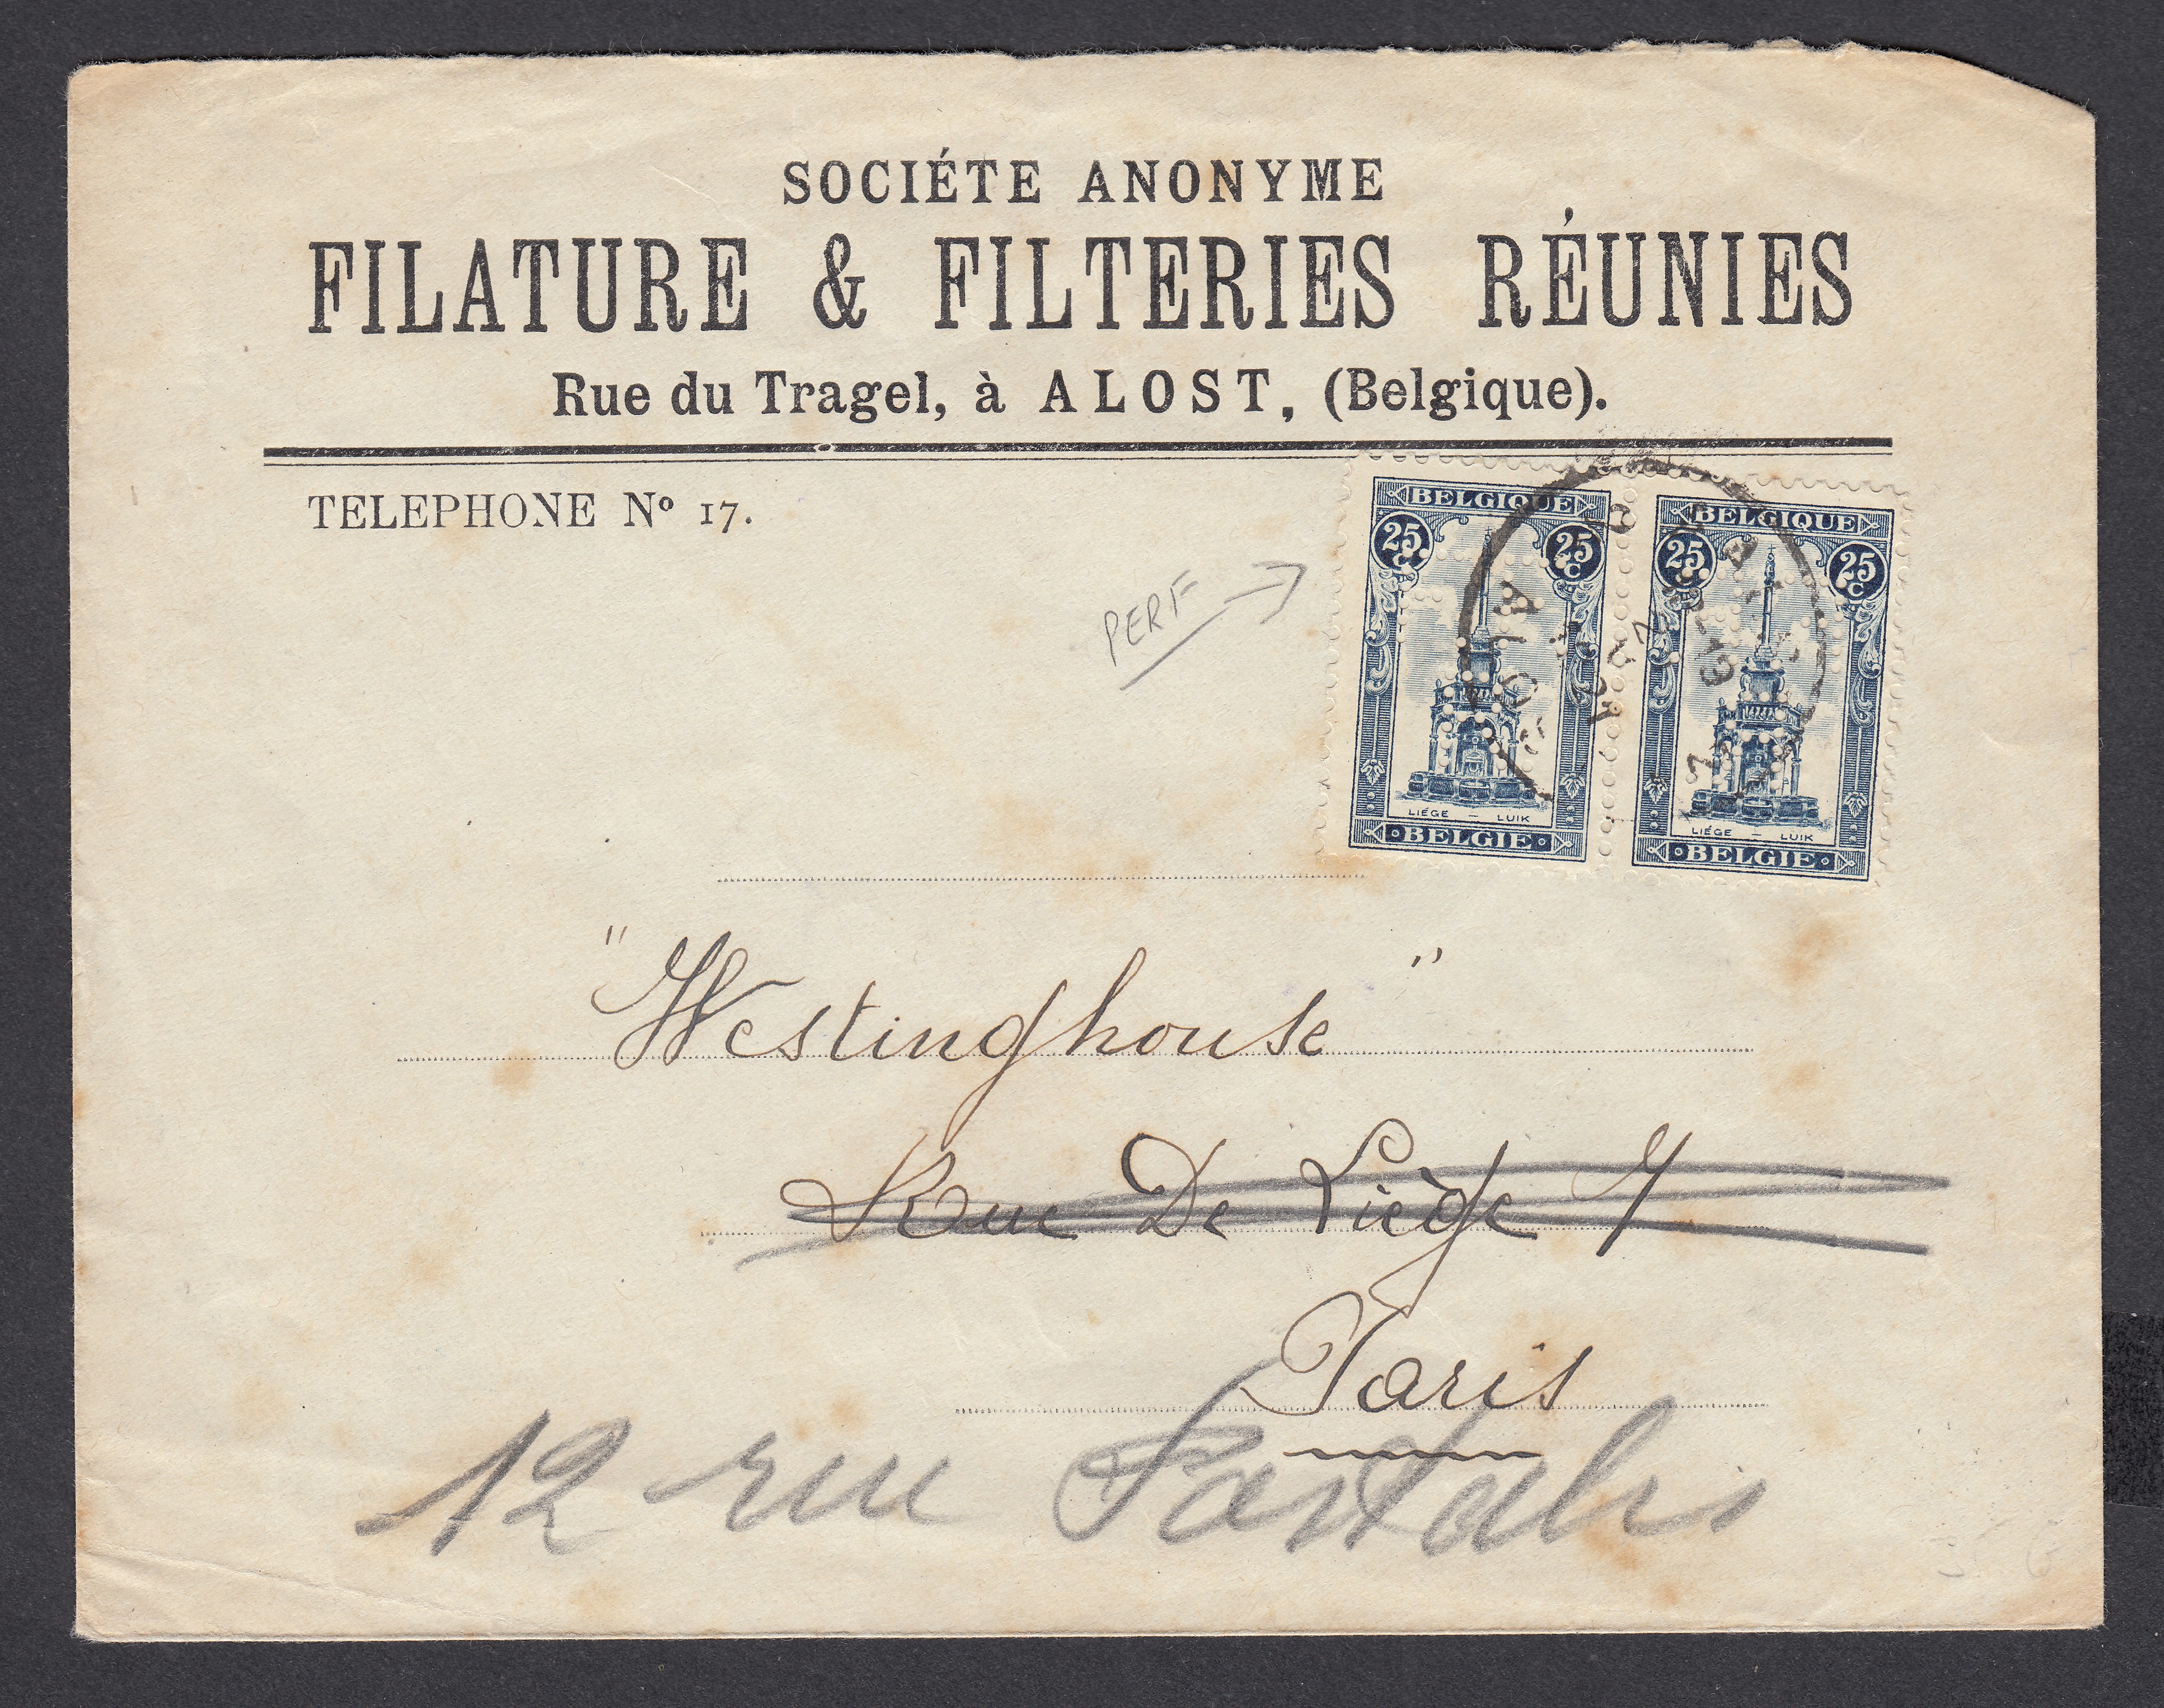 SOCIÉTE ANONYME
FILATURE & FILTERIES RÉUNIES
Rue du Tragel, à ALOST, (Belgique).
TELEPHONE Nº 17.
PERF
BELGIQUE
25 25
C C
LIÉGE – LUIK
BELGIE
BELGIQUE
25 25
C C
LIÉGE – LUIK
BELGIE
"Westinghouse"
Rue De Liège
Paris
12 rue Portalis